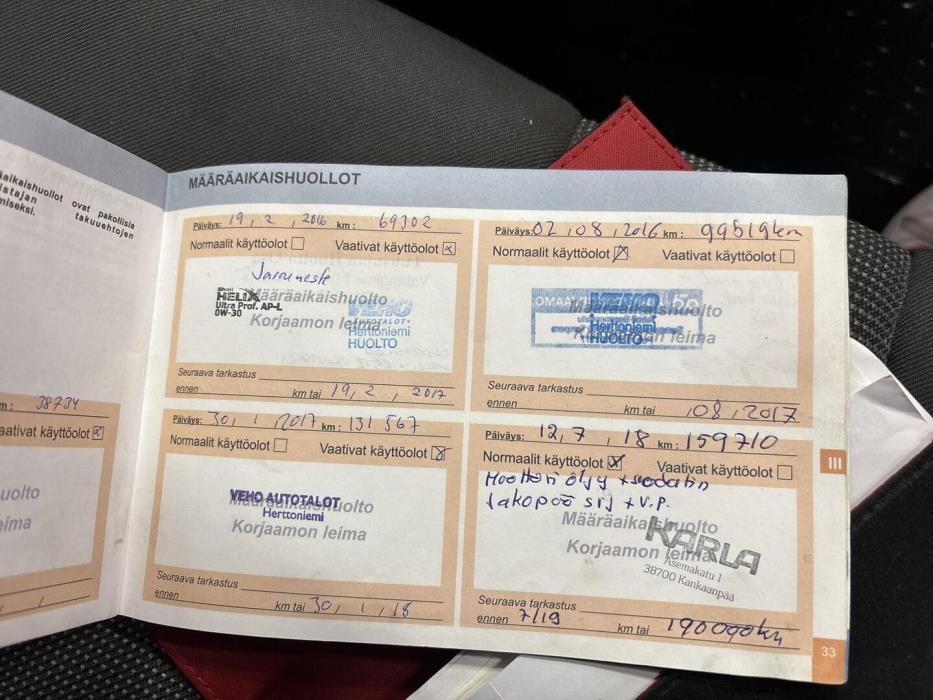 äaikaishuollot ovat pakollisia
istajan takuuehtojen
miseksi.
m: 38734
aativat käyttöolot
uolto
eima
MÄÄRÄAIKAISHUOLLOT
Päiväys: 19, 2, 2016 km: 69302
Normaalit käyttöolot Vaativat käyttöolot x
Jarruneste
Shell
HELIX
Ultra Prof. AP-L
0W-30
Määräaikaishuolto
Korjaamon leima
VEHO
AUTOTALOT
Herttoniemi
HUOLTO
Seuraava tarkastus
ennen km tai 19, 2, 2017
Päiväys: 02, 08, 2016 km: 99519km
Normaalit käyttöolot x Vaativat käyttöolot
Määräaikaishuolto
Korjaamon leima
VEHO
Herttoniemi
HUOLTO
Seuraava tarkastus
ennen km tai ,08, 2017
Päiväys: 30, 1, 2017 km: 131 567
Normaalit käyttöolot Vaativat käyttöolot x
VEHO AUTOTALOT
Herttoniemi
Määräaikaishuolto
Korjaamon leima
Seuraava tarkastus
ennen km tai 30, 1, 18
Päiväys: 12, 7, 18 km: 159710
Normaalit käyttöolot x Vaativat käyttöolot
Moottori öljy + suodatin
Jakopää srj + V.P.
Määräaikaishuolto
Korjaamon leima
KARLA
Asemakatu 1
38700 Kankaanpää
Seuraava tarkastus
ennen 7/19 km tai 190000km
III
33